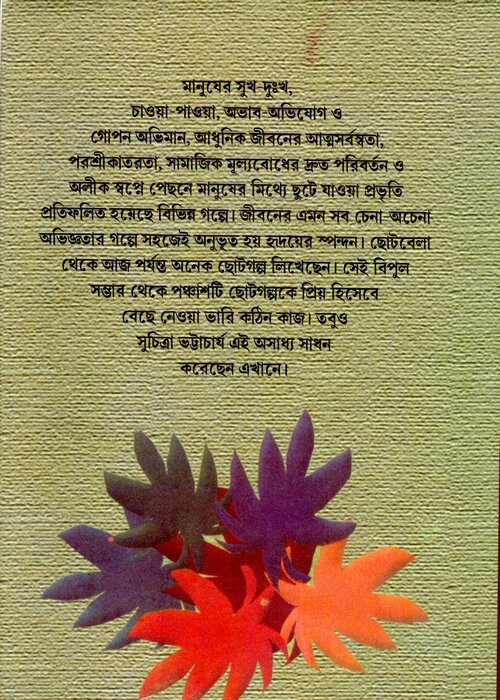 মানুষের সুখ-দুঃখ,
চাওয়া-পাওয়া, অভাব-অভিযোগ ও
গোপন অভিমান, আধুনিক জীবনের আত্মসর্বস্বতা,
পরশ্রীকাতরতা, সামাজিক মূল্যবোধের দ্রুত পরিবর্তন ও
অলীক স্বপ্নে পেছনে মানুষের মিথ্যে ছুটে যাওয়া প্রভৃতি
প্রতিফলিত হয়েছে বিভিন্ন গল্পে। জীবনের এমন সব চেনা-অচেনা
অভিজ্ঞতার গল্পে সহজেই অনুভূত হয় হৃদয়ের স্পন্দন। ছোটবেলা
থেকে আজ পর্যন্ত অনেক ছোটগল্প লিখেছেন। সেই বিপুল
সম্ভার থেকে পঞ্চাশটি ছোটগল্পকে প্রিয় হিসেবে
বেছে নেওয়া ভারি কঠিন কাজ। তবুও
সুচিত্রা ভট্টাচার্য এই অসাধ্য সাধন
করেছেন এখানে।